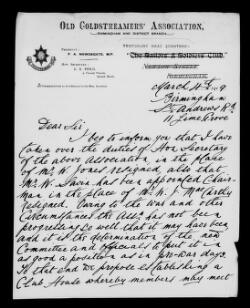 OLD COLDSTREAMERS' ASSOCIATION,
BIRMINGHAM AND DISTRICT BRANCH.
TEMPORARY HEAD QUARTERS:
March 4th
Birmingham
St Andrews Rd
11 Lime Grove
Dear Sir,
I beg to inform you that I have
taken over the duties of Hon Secretary
of the above Association, in the place
of Mr W. Jones resigned, also that
Mr W. has been appointed Chair-
man in the place of Mr W. J. McCarthy
resigned. Owing to the war and other
Circumstances the Assn has not been
progressing so well that it may have been
and it is the determination of the new
Committee and officials to put it in
as good a position as in pre-war days
To that end we propose establishing a
Club House whereby members may meet